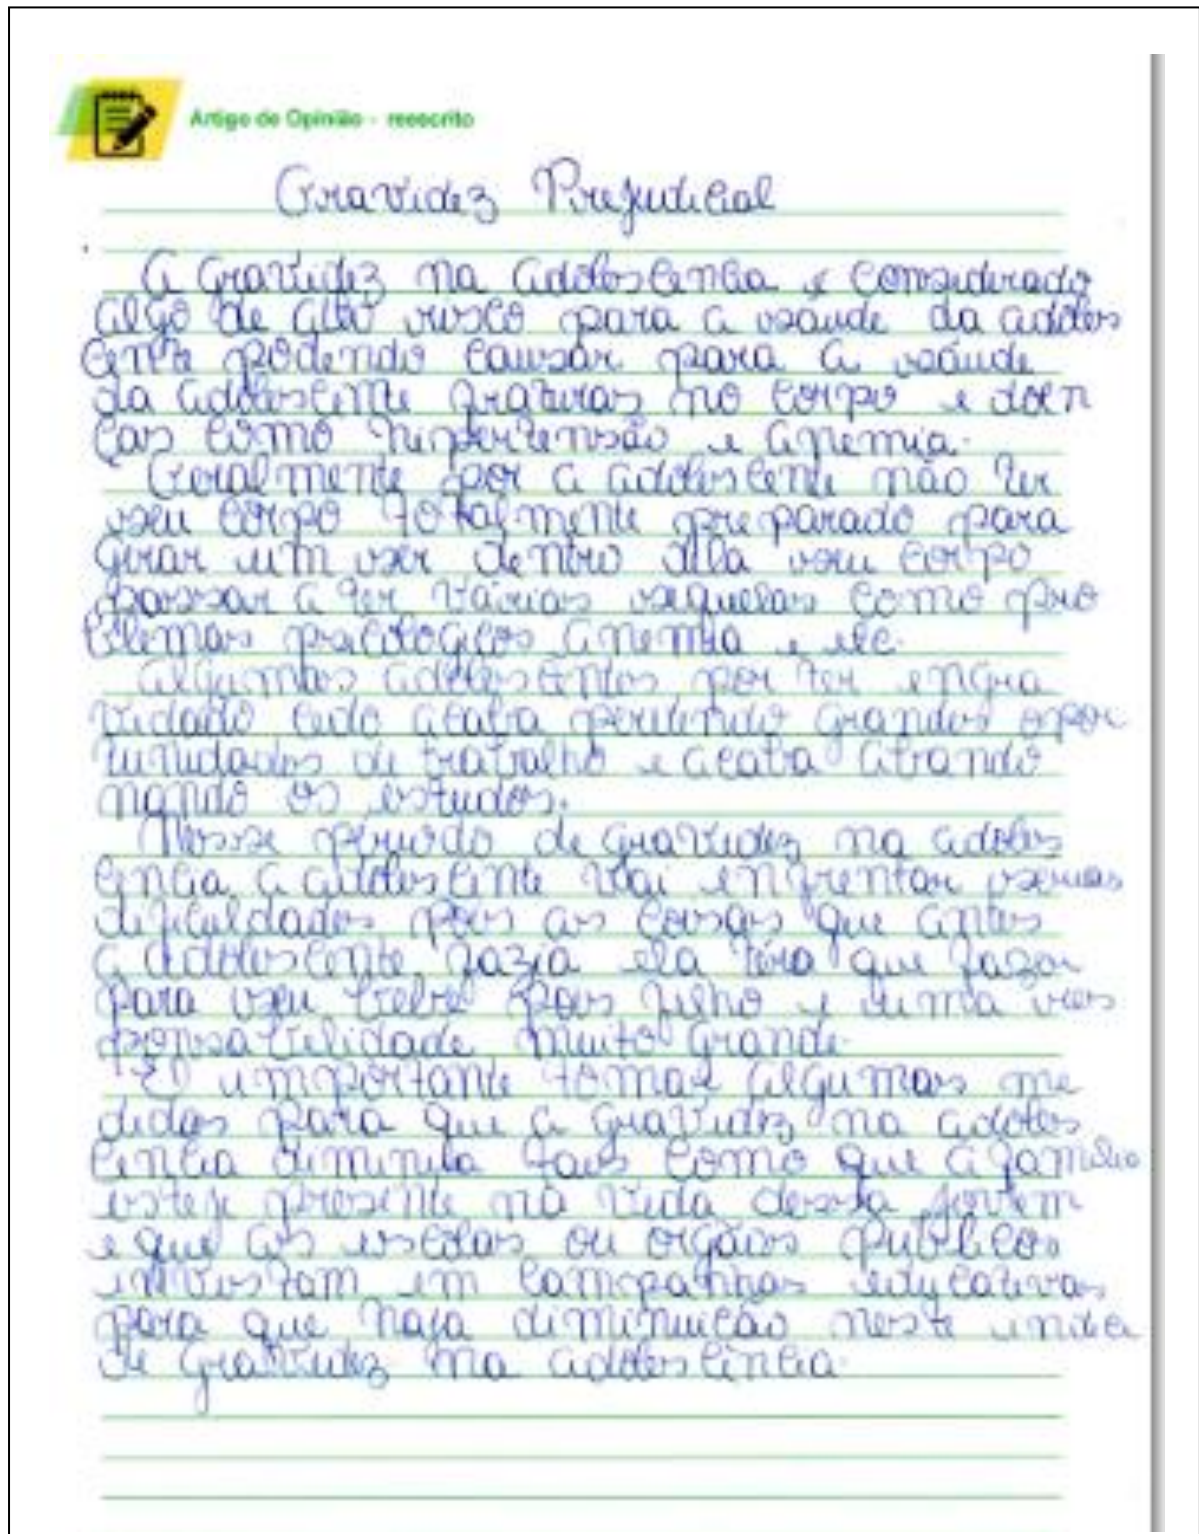 Artigo de Opinião - reescrito
Gravidez Prejudicial
A Gravidez na adolescencia é considerado
algo de alto risco para a saúde da adoles
cente podendo causar para a saúde
da adolescente fraturas no corpo e doen
ças como hipertensão e anemia.
Geralmente por a adolescente não ter
seu corpo totalmente preparado para
gerar um ser dentro dela seu corpo
passar a ter várias sequelas como pro
blemas psicologicos anemia e etc.
Algumas adolescentes por ter engra
vidado cedo acaba perdendo grandes opor
tunidades de trabalho e acaba abando
nando os estudos.
Nesse periodo de gravidez na adoles
cencia a adolescente vai enfrentar serias
dificuldades pois as coisas que antes
a adolescente fazia ela terá que fazer
para seu bebê pois filho e uma res
ponsabilidade muito grande.
É importante tomar algumas me
didas para que a gravidez na adoles
cencia diminua tais como que a familia
esteje presente na vida dessa jovem
e que as escolas ou orgãos públicos
invistam em campanhas educativas
para que haja diminuição neste indice
de gravidez na adolescencia.